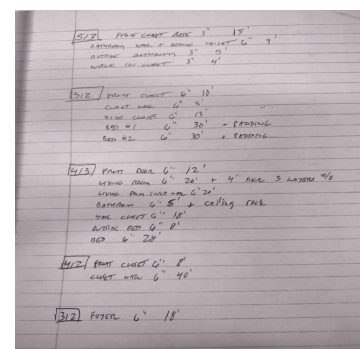 513 FRONT CLOSET BASE 3" 15'
BATHROOM WALL & BEHIND TOILET 6" 9'
OUTSIDE BATHROOM 3" 5'
WALK IN CLOSET 3" 4'
512 FRONT CLOSET 6" 10'
CLOSET WALL 6" 5'
SIDE CLOSET 6" 13'
BED #1 6" 30' + PADDING
BED #2 6" 30' + PADDING
413 FRONT DOOR 6" 12'
LIVING ROOM 6" 20' + 4" 3 LAYERS 5/8
LIVING ROOM WALL 6" 20'
BATHROOM 6" 5' + ceiling
HALL CLOSET 6" 18'
OUTSIDE BED 6" 8'
BED 6" 28'
412 FRONT CLOSET 6" 8'
CLOSET HALL 6" 40'
312 FOYER 6" 18'